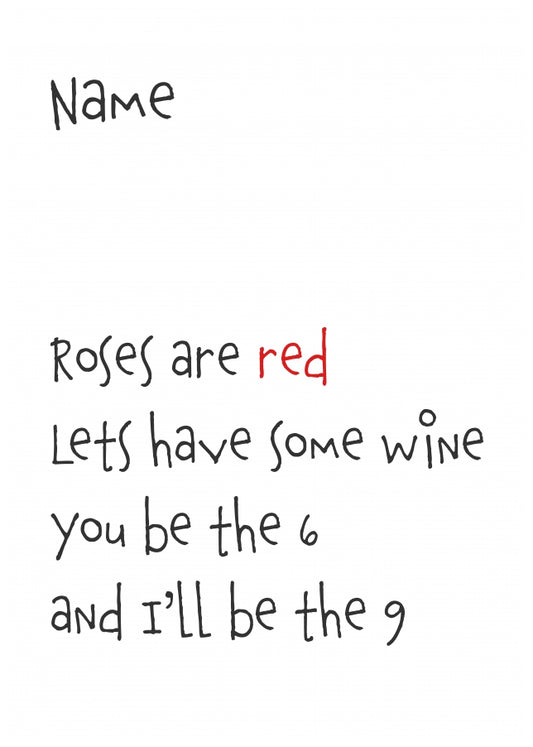 Name
Roses are red
Lets have some wine
you be the 6
and I'll be the 9